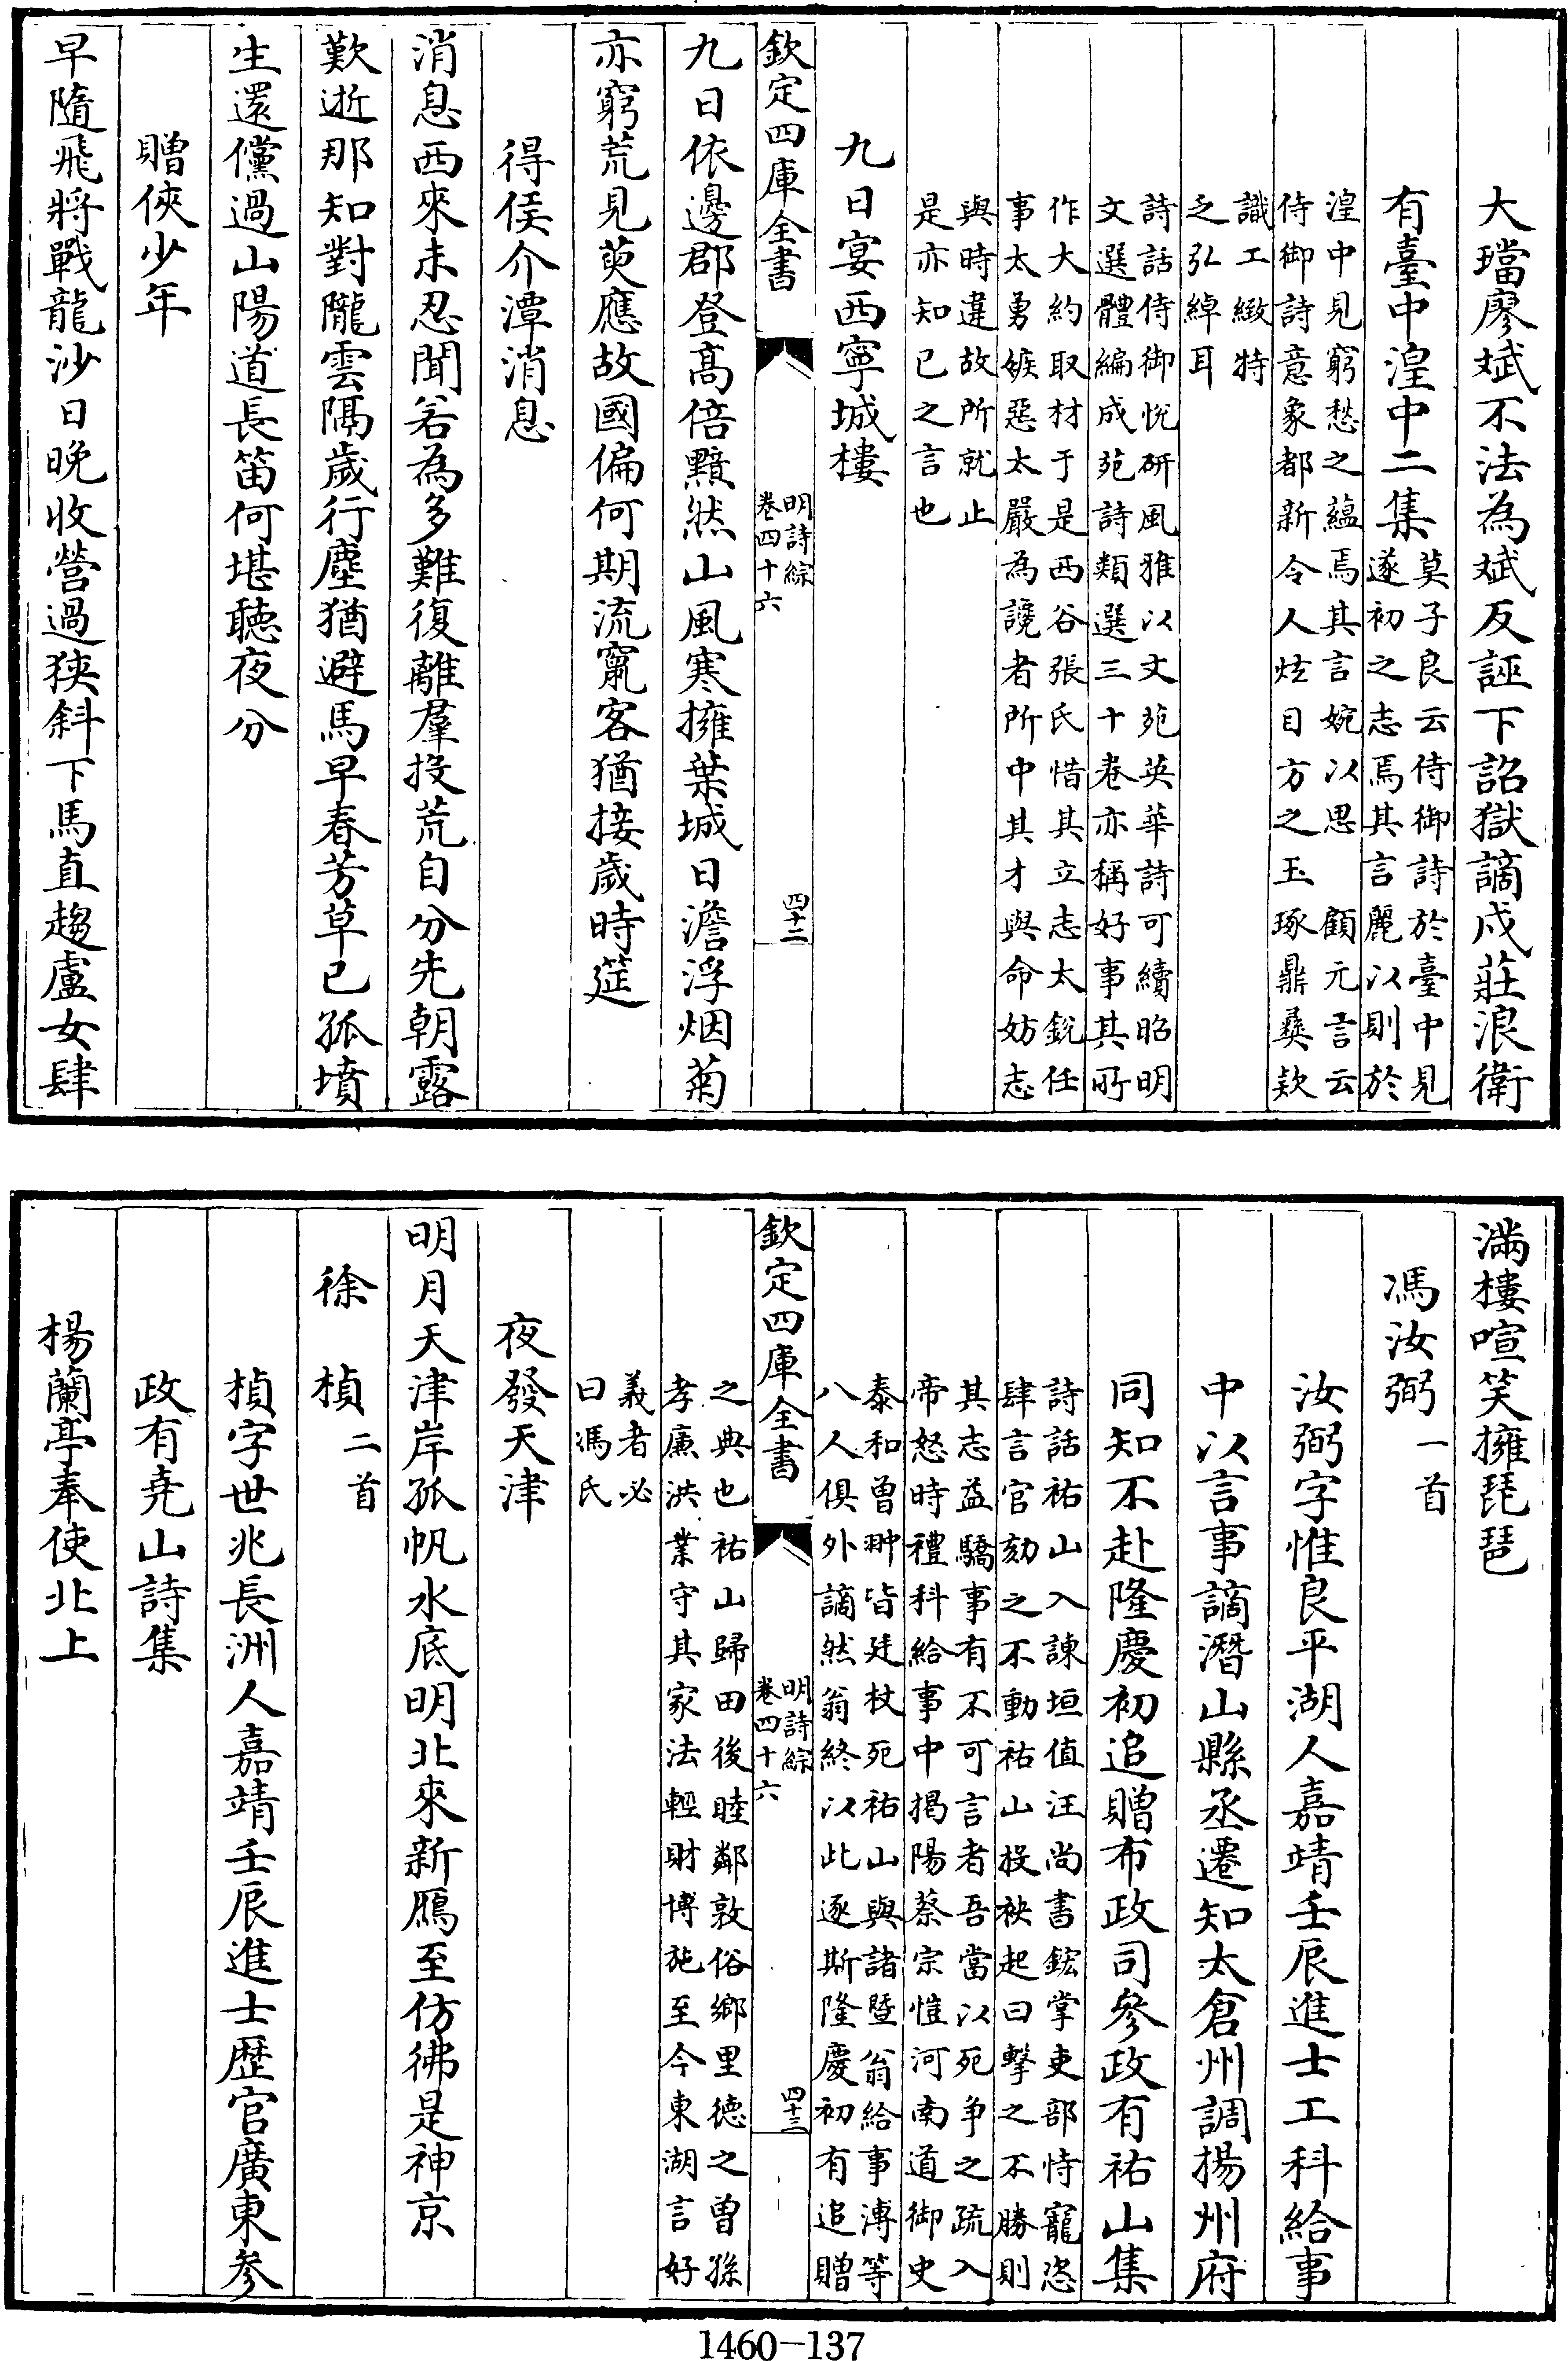 大璫廖斌不法為斌反誣下詔獄謫戍莊浪衛
有臺中湟中二集莫子良云侍御詩於臺中見
遂初之志焉其言麗以則於
湟中見窮愁之蘊焉其言婉以思　顧元言云
侍御詩意象都新令人炫目方之玉琢鼎彝款
識工緻特
之弘綽耳
詩話侍御悅研風雅以文苑英華詩可續昭明
文選體編成苑詩類選三十卷亦稱好事其所
作大約取材于是西谷張氏惜其立志太銳任
事太勇嫉惡太嚴為讒者所中其才與命妨志
與時違故所就止
是亦知已之言也
九日宴西寧城樓
欽定四庫全書
明詩綜
卷四十六
四十二
九日依邊郡登高倍黯然山風寒擁葉城日澹浮烟菊
亦窮荒見萸應故國偏何期流竄客猶接歲時筵
得侯介潭消息
消息西來未忍聞若為多難復離羣投荒自分先朝露
歎逝那知對隴雲隔歲行塵猶避馬早春芳草已孤墳
生還儻過山陽道長笛何堪聽夜分
贈俠少年
早隨飛將戰龍沙日晚收營過狹斜下馬直趨盧女肆
滿樓喧笑擁琵琶
馮汝弼一首
汝弼字惟良平湖人嘉靖壬辰進士工科給事
中以言事謫潛山縣丞遷知太倉州調揚州府
同知不赴隆慶初追贈布政司參政有祐山集
詩話祐山入諫垣值汪尚書鋐掌吏部恃寵恣
肆言官劾之不動祐山投袂起曰擊之不勝則
其志益驕事有不可言者吾當以死爭之疏入
帝怒時禮科給事中揭陽蔡宗愷河南道御史
泰和曾翀皆廷杖死祐山與諸暨翁給事溥等
八人俱外謫然翁終以此逐斯隆慶初有追贈
之典也祐山歸田後睦鄰敦俗鄉里德之曾孫
孝廉洪業守其家法輕財博施至今東湖言好
義者必
曰馮氏
欽定四庫全書
明詩綜
卷四十六
四十三
夜發天津
明月天津岸孤帆水底明北來新鴈至仿彿是神京
徐楨二首
楨字世兆長洲人嘉靖壬辰進士歷官廣東參
政有堯山詩集
楊蘭亭奉使北上
1460-137